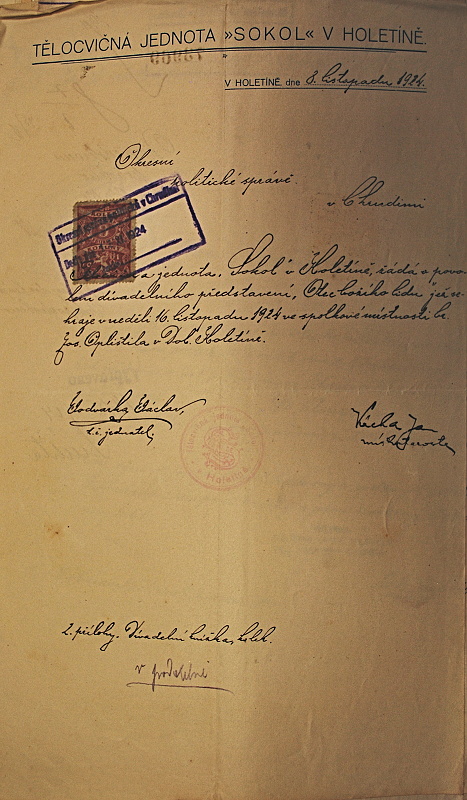 TĚLOCVIČNÁ JEDNOTA »SOKOL« V HOLETÍNĚ.
V HOLETÍNĚ, dne 8. listopadu 1924.
Okresní
politické správě
v Chrudimi
a jednota „Sokol" v Holetíně, žádá o povo-
lení divadelního představení, Otec božího lidu jež se-
hraje v neděli 16. listopadu 1924 ve spolkové místnosti br.
Jos. Oplištila v Dol. Holetíně.
Václav,
t. č. jednatel,
Vácha Jan
místostarosta
2. přílohy. Divadelní knížka, kolek.